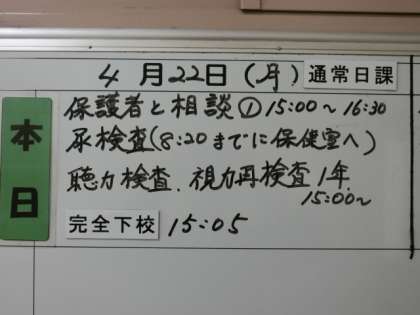 4月22日(月) 通常日課
本日
保護者と相談① 15:00〜16:30
尿検査(8:20までに保健室へ)
聴力検査、視力再検査 1年
15:00〜
完全下校 15:05